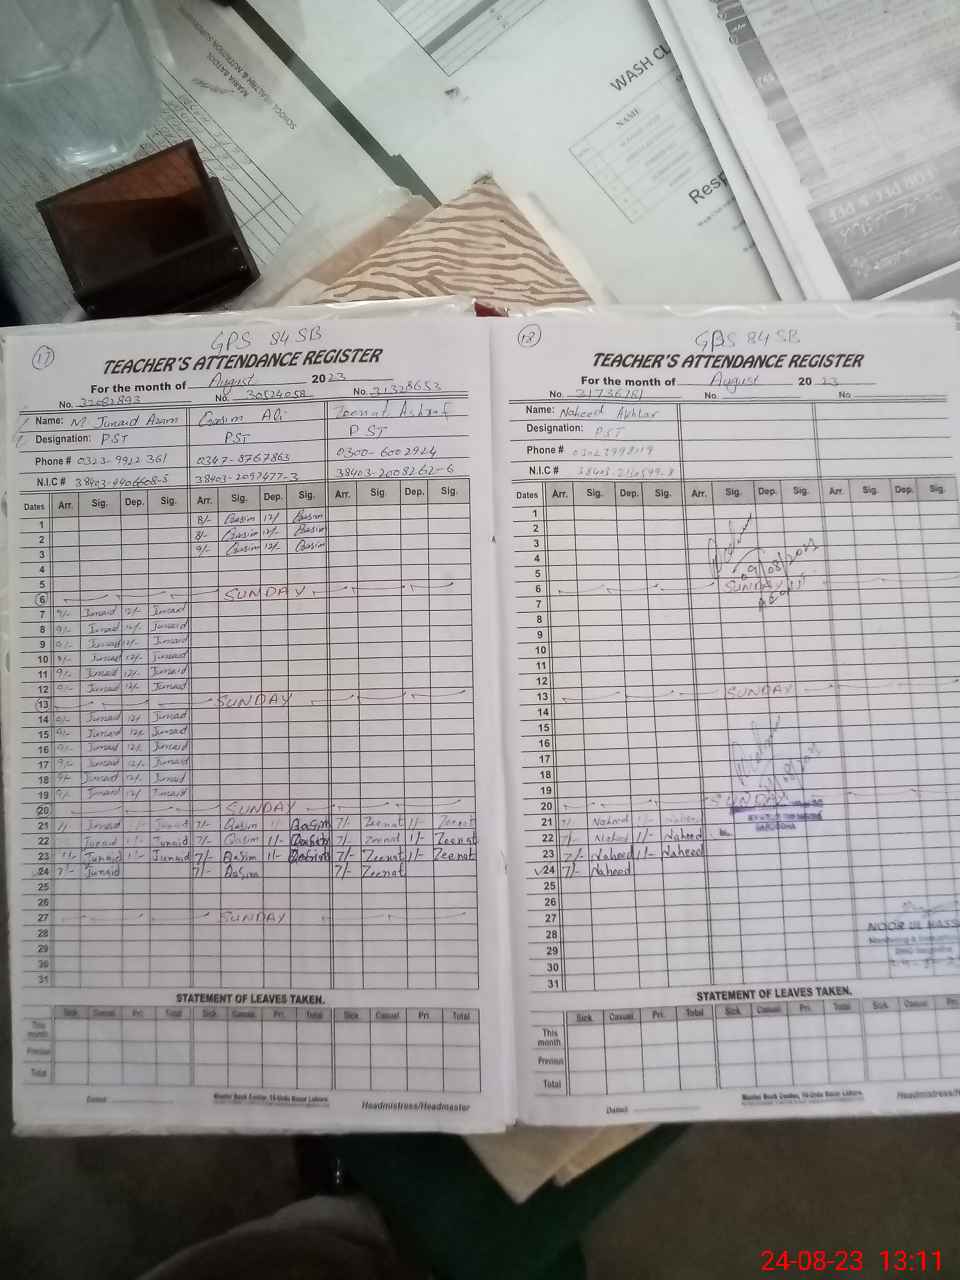 MARIA BATOOL
SCHOOL HEALTH & NUTRITION SUPERVISOR
WASH CL
NAME
Resp
17
GPS 84 SB
TEACHER'S ATTENDANCE REGISTER
For the month of August 2023
No. 32682893 No. 30524058 No. 31328653
Name: M. Junaid Azam Qasim Ali Zeenat Ashraf
Designation: PST PST PST
Phone # 0323-9912361 0347-8767863 0300-6002924
N.I.C # 38403-4406608-5 38403-2097477-3 38403-2008262-6
Dates Arr. Sig. Dep. Sig. Arr. Sig. Dep. Sig. Arr. Sig. Dep. Sig.
1 8/- Qasim 12/- Qasim
2 8/- Qasim 12/- Qasim
3 9/- Qasim 12/- Qasim
4
5
6 SUNDAY
7 9/- Junaid 12/- Junaid
8 9/- Junaid 12/- Junaid
9 9/- Junaid 12/- Junaid
10 8/- Junaid 12/- Junaid
11 9/- Junaid 12/- Junaid
12 9/- Junaid 12/- Junaid
13 SUNDAY
14 9/- Junaid 12/- Junaid
15 9/- Junaid 12/- Junaid
16 9/- Junaid 12/- Junaid
17 9/- Junaid 12/- Junaid
18 9/- Junaid 12/- Junaid
19 9/- Junaid 12/- Junaid
20 SUNDAY
21 Junaid 1/- Junaid 7/- Qasim 1/- Qasim 7/- Zeenat 1/- Zeenat
22 Junaid 1/- Junaid 7/- Qasim 1/- Qasim 7/- Zeenat 1/- Zeenat
23 Junaid 1/- Junaid 7/- Qasim 1/- Qasim 7/- Zeenat 1/- Zeenat
24 7/- Junaid 7/- Qasim 7/- Zeenat
25
26
27 SUNDAY
28
29
30
31
STATEMENT OF LEAVES TAKEN.
Sick. Casual. Pri. Total Sick. Casual. Pri. Total Sick. Casual. Pri. Total
This month
Previous
Total
Dated:
Master Book Center, 16-Urdu Bazar Lahore.
Headmistress/Headmaster
18
GPS 84 SB
TEACHER'S ATTENDANCE REGISTER
For the month of August 2023
No. 31736781 No No
Name: Naheed Akhtar
Designation: PST
Phone #
N.I.C #
Dates Arr. Sig. Dep. Sig. Arr. Sig. Dep. Sig. Arr. Sig. Dep. Sig.
1
2
3
4
09/08/2023
5
6 SUNDAY
7
8
9
10
11
12
13 SUNDAY
14
15
16
17
18
19
20 SUNDAY
21 7/- Naheed 1/- Naheed
22 7/- Naheed 1/- Naheed
23 7/- Naheed 1/- Naheed
24 7/- Naheed
25
26
27
28
NOOR UL HASSA
29
30
31
STATEMENT OF LEAVES TAKEN.
Sick. Casual. Pri. Total Sick. Casual. Pri. Total Sick. Casual. Pri.
This month
Previous
Total
Dated:
Master Book Center, 16-Urdu Bazar Lahore.
Headmistress/H
24-08-23 13:11